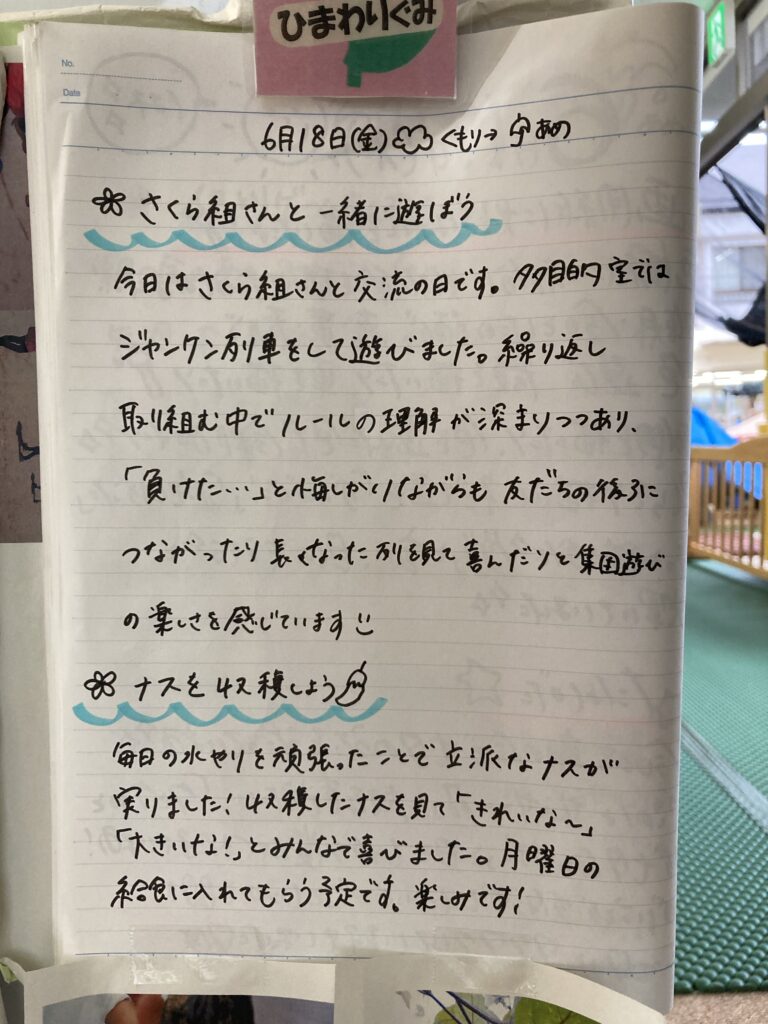 ひまわりぐみ
No.
Date
6月18日(金) くもり→ あめ
さくら組さんと一緒に遊ぼう
今日はさくら組さんと交流の日です。多目的室では
ジャンケン列車をして遊びました。繰り返し
取り組む中でルールの理解が深まりつつあり、
「負けた…」と悔しがりながらも友だちの後ろに
つながったり長くなった列を見て喜んだりと集団遊び
の楽しさを感じています
ナスを収穫しよう
毎日の水やりを頑張ったことで立派なナスが
実りました!収穫したナスを見て「きれいな〜」
「大きいな!」とみんなで喜びました。月曜日の
給食に入れてもらう予定です。楽しみです!